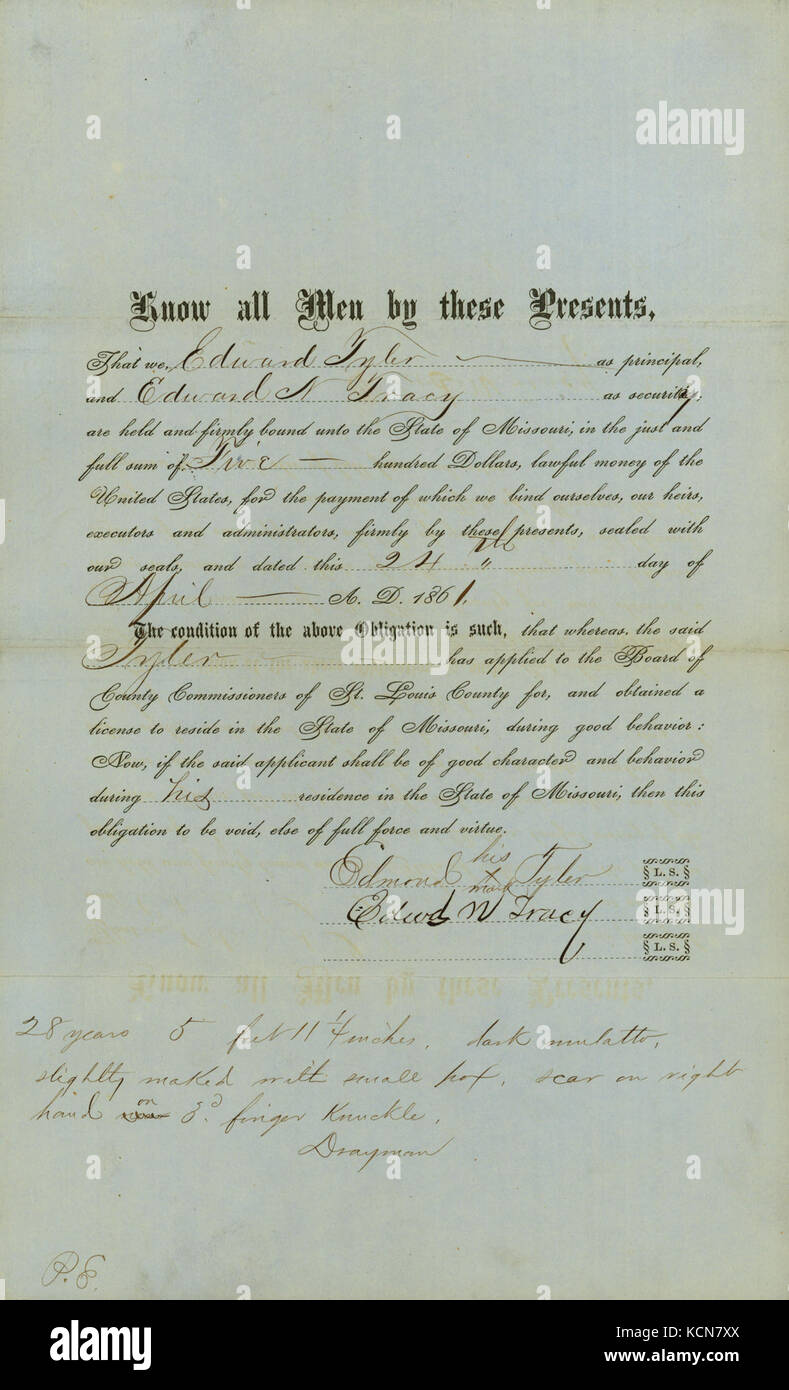 Know all Men by these Presents,
That we, Edward Tyler as principal,
and Edward N Tracy as security,
are held and firmly bound unto the State of Missouri, in the just and
full sum of hundred Dollars, lawful money of the
United States, for the payment of which we bind ourselves, our heirs,
executors and administrators, firmly by these presents, sealed with
our seals, and dated this 24 th day of
April A. D. 1861.
The condition of the above Obligation is such, that whereas, the said
Tyler has applied to the Board of
County Commissioners of St. Louis County for, and obtained a
license to reside in the State of Missouri, during good behavior:
Now, if the said applicant shall be of good character and behavior
during his residence in the State of Missouri, then this
obligation to be void, else of full force and virtue.
Edmond his x mark Tyler L. S.
Edwd N Tracy L. S.
L. S.
28 years 5 feet 11 1/4 inches, dark mulatto,
slightly maked with small pox, scar on right
hand on 3d finger Knuckle,
Drayman
alamy
Image ID: KCN7XX
www.alamy.com